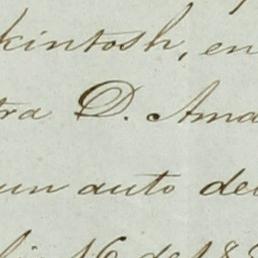 kintosh, en
tra D. Ama
un auto de
16 de 18